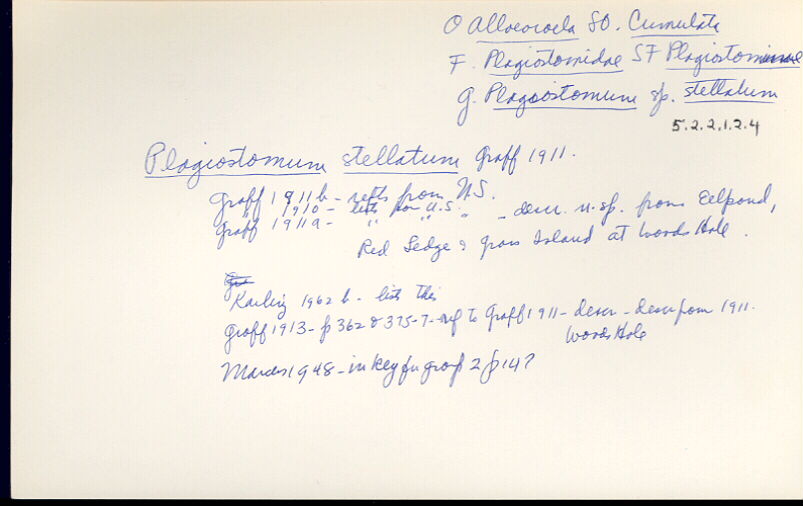 O Alloeocoela SO. Cumulata
F. Plagiostomidae SF Plagiostominae
g. Plagiostomum sp. stellatum
5.2.2.1.2.4
Plagiostomum stellatum Graff 1911.
Graff 1911b - refts from U.S.
" 1910 - lists from U.S.
Graff 1911a - " " " - descr. n. sp. from Eelpond,
Red Ledge & Grass Island at Woods Hole.
Karling 1962b - lists this
Graff 1913 - p 362 & 375-7 - ref to Graff 1911 - descr - descr from 1911.
Woods Hole
Marcus 1948 - in key for group 2 p 147